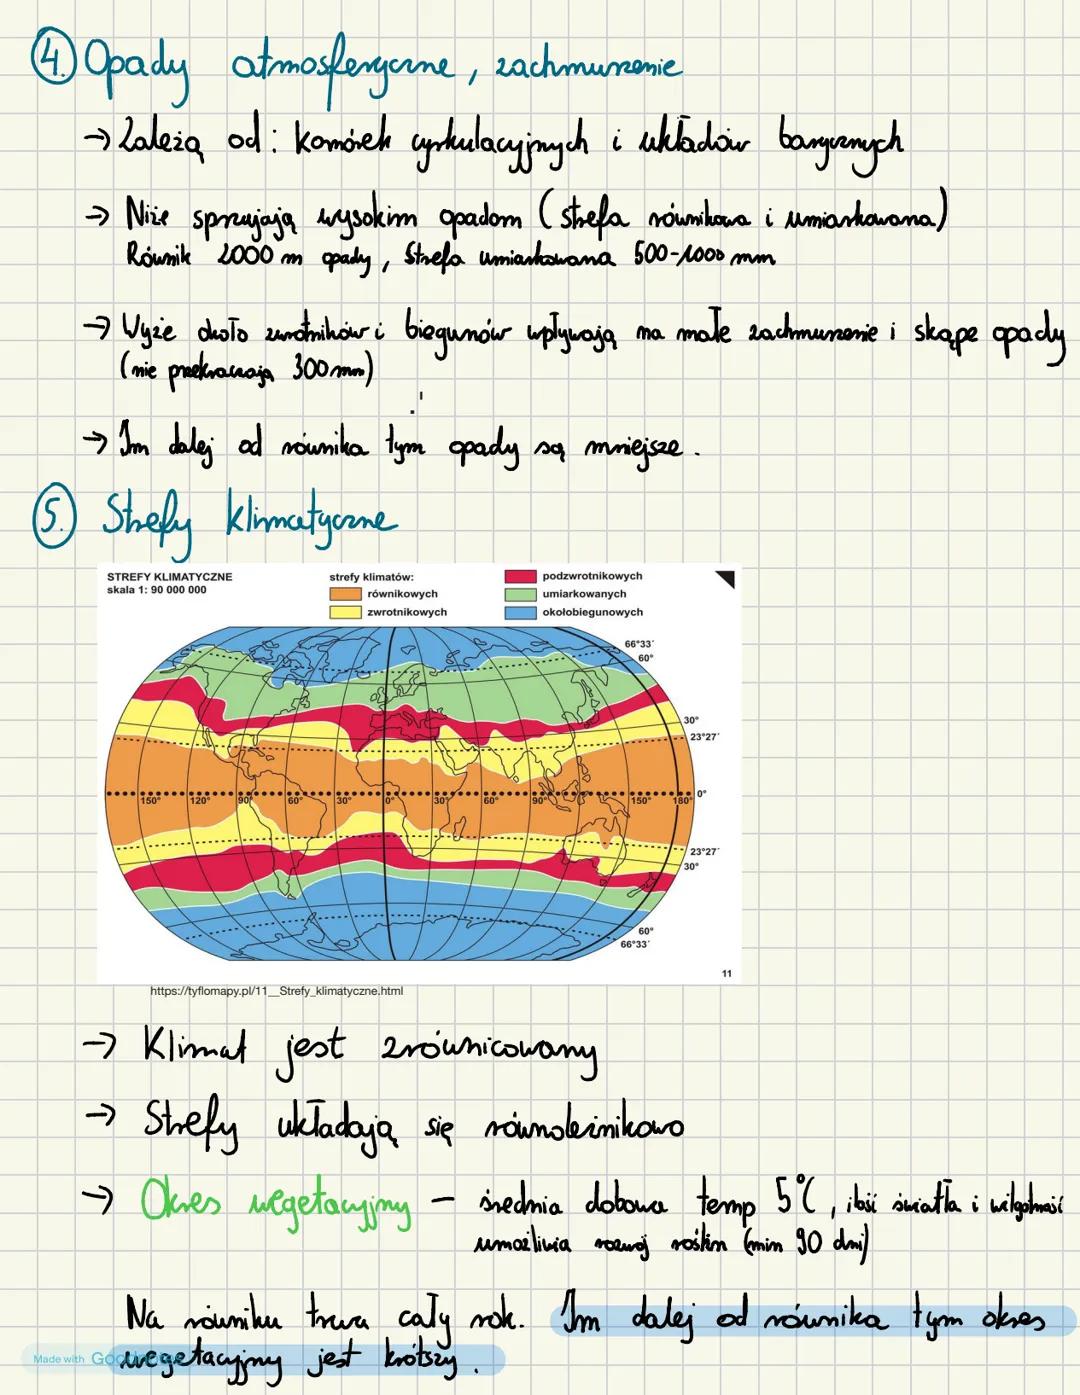 4. Opady atmosferyczne, zachmurzenie
→ Zależą od: komórek cyrkulacyjnych i układów barycznych
→ Niże sprzyjają wysokim opadom (strefa równikowa i umiarkowana)
Równik 2000 m opady, Strefa umiarkowana 500-1000 mm
→ Wyże około zwrotników i biegunów wpływają na małe zachmurzenie i skąpe opady
(nie przekraczają 300 mm)
→ Im dalej od równika tym opady są mniejsze.
5. Strefy klimatyczne
STREFY KLIMATYCZNE
skala 1: 90 000 000
strefy klimatów:
równikowych
zwrotnikowych
podzwrotnikowych
umiarkowanych
okołobiegunowych
66°33´
60°
30°
23°27´
150° 120° 90° 60° 30° 0° 30° 60° 90° 150° 180° 0°
23°27´
30°
60°
66°33´
11
https://tyflomapy.pl/11__Strefy_klimatyczne.html
→ Klimat jest zrównicowany
→ Strefy układają się równoleżnikowo
→ Okres wegetacyjny – średnia dobowa temp 5°C, ilość światła i wilgotność
umożliwia rozwój roślin (min 90 dni)
Na równiku trwa cały rok. Im dalej od równika tym okres
wegetacyjny jest krótszy.
Made with Goodnotes